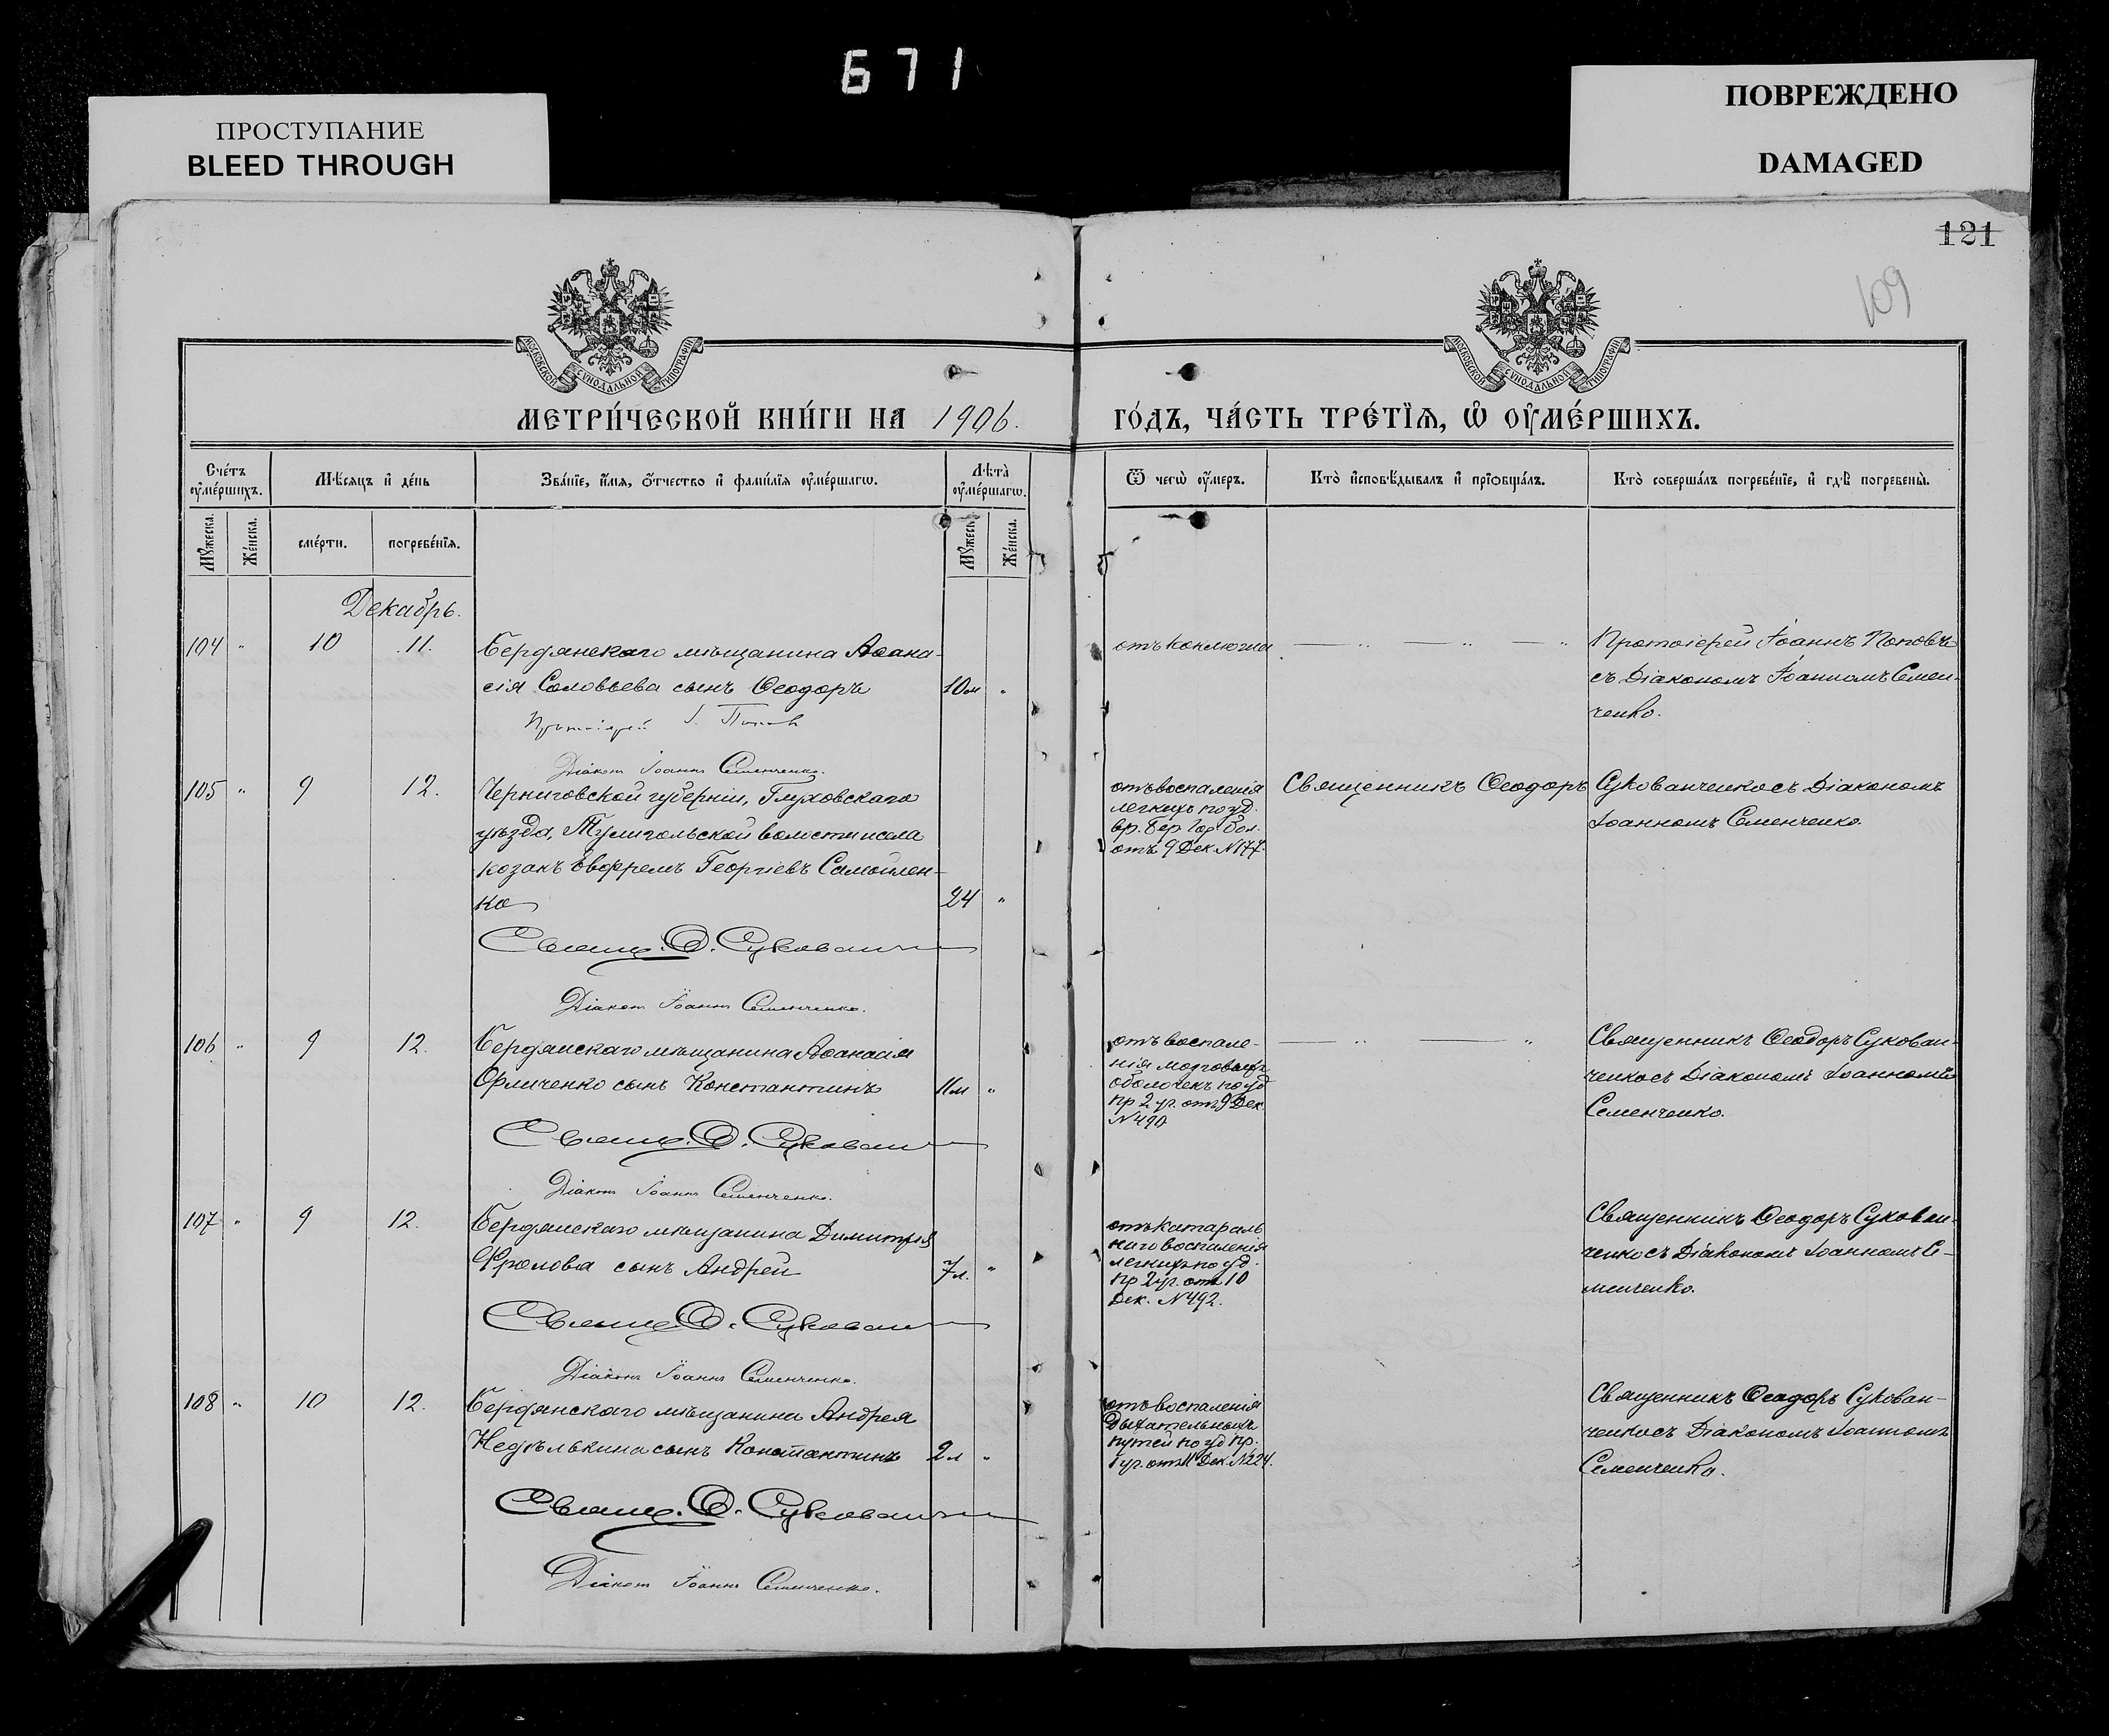 671
ПРОСТУПАНИЕ
BLEED THROUGH
ПОВРЕЖДЕНО
DAMAGED
121
109
МОСКОВСКОЙ СѴНОДАЛЬНОЙ ТИПОГРАФІИ
МОСКОВСКОЙ СѴНОДАЛЬНОЙ ТИПОГРАФІИ
МЕТРИ́ЧЕСКОЙ КНИ́ГИ НА 1906.
ГО́ДЪ, ЧА́СТЬ ТРЕ́ТЇѦ, Ѡ҆ ОУ҆МЕ́РШИХЪ.
Сче́тъ оу҆ме́ршихъ.
Мѣ́сѧцъ и҆ де́нь
Зва́нїе, и҆́мѧ, ѻ҆́тчество и҆ фами́лїѧ оу҆ме́ршагѡ.
Лѣ́та̀ оу҆ме́ршагѡ.
Ѿ чегѡ̀ оу҆́меръ.
Кто̀ и҆сповѣ́дывалъ и҆ прїѻбща́лъ.
Кто̀ соверша́лъ погребе́нїе, и҆ гдѣ̀ погребены̀.
Мꙋ́жеска.
Же́нска.
сме́рти.
погребе́нїѧ.
Мꙋ́жеск.
Же́нска.
Декабрь.
104 " 10 11. Бердянскаго мѣщанина Аѳана-
сія Соловьева сынъ Ѳеодоръ 10м "
Протоіерей І. Попов
Діаконъ Іоаннъ Семенченко.
отъ коклюша
Протоіерей Іоаннъ Поповъ
съ Діакономъ Іоанномъ Семен-
ченко.
105 " 9 12. Черниговской губерніи, Глуховскаго
уѣзда, Тулигольской волости и села
козакъ Евфремъ Георгіевъ Самойлен-
ко 24 "
Свящ. Ѳ. Сукован
Діаконъ Іоаннъ Семенченко.
отъ воспаленія
легкихъ по уд.
вр. Бер. Гор. Бол.
отъ 9 Дек. №177.
Священникъ Ѳеодоръ Сукованченко съ Діакономъ
Іоанномъ Семенченко.
106 " 9 12. Бердянскаго мѣщанина Аѳанасія
Орличенко сынъ Константинъ 11м "
Свящ. Ѳ. Сукован
Діаконъ Іоаннъ Семенченко.
отъ воспале-
нія мозговыхъ
оболочекъ по уд
пр 2 уч. отъ 9 Дек.
№490
Священникъ Ѳеодоръ Сукован-
ченко съ Діакономъ Іоанномъ
Семенченко.
107 " 9 12. Бердянскаго мѣщанина Димитрія
Фролова сынъ Андрей 7л. "
Свящ. Ѳ. Сукован
Діаконъ Іоаннъ Семенченко.
отъ катараль
наго воспаленія
легкихъ по уд.
пр 2 уч. отъ 10
Дек. №492.
Священникъ Ѳеодоръ Сукован-
ченко съ Діакономъ Іоанномъ Се-
менченко.
108 " 10 12. Бердянскаго мѣщанина Андрея
Недѣлькина сынъ Константинъ 2л "
Свящ. Ѳ. Сукован
Діаконъ Іоаннъ Семенченко.
отъ воспаленія
дыхательныхъ
путей по уд пр.
1 уч. отъ 11 Дек. №224.
Священникъ Ѳеодоръ Сукован-
ченко съ Діакономъ Іоанномъ
Семенченко.